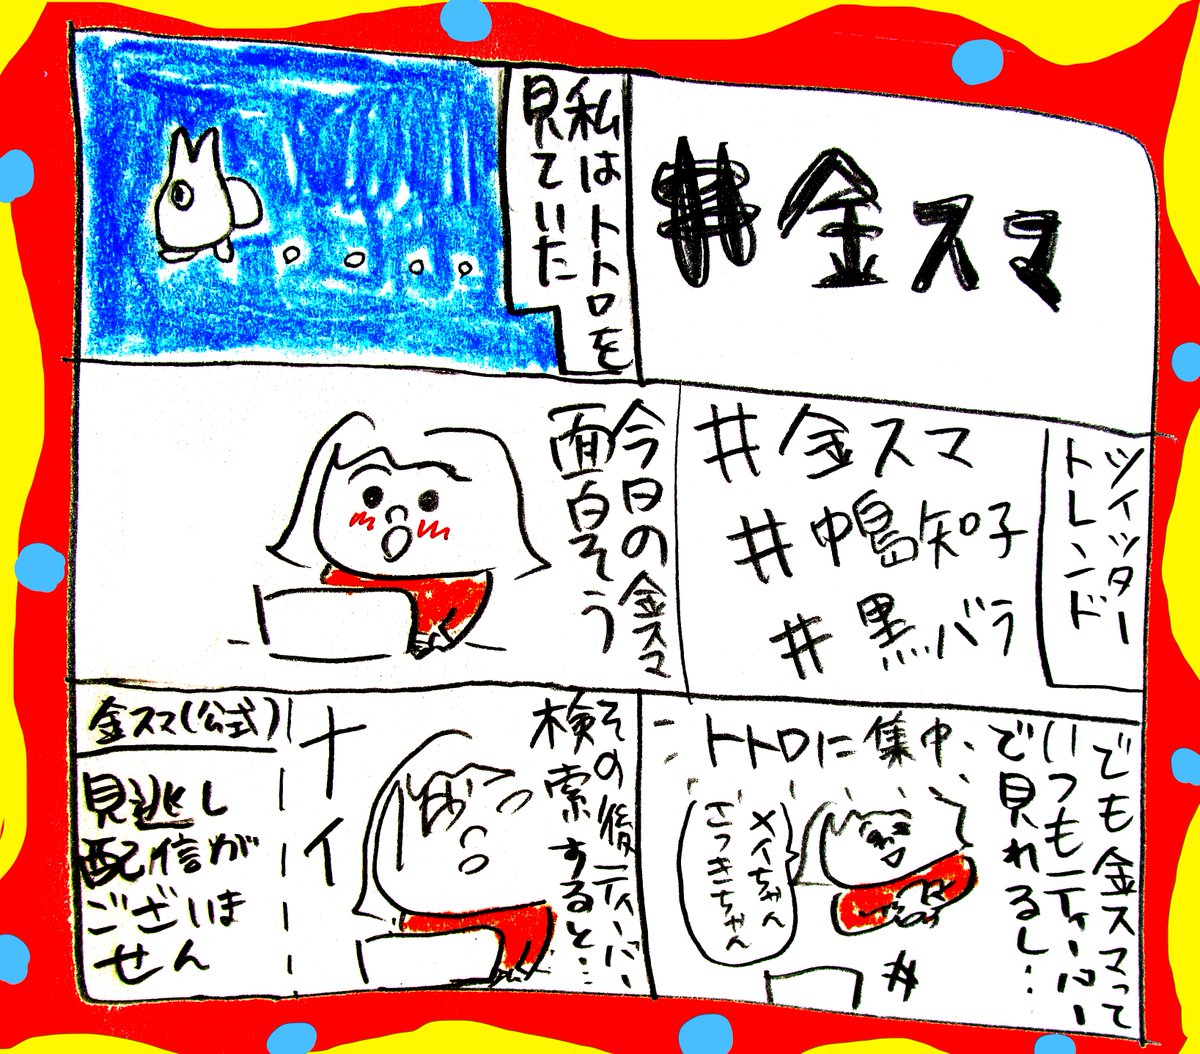 #金スマ
私はトトロを
見ていた
ツイッター
トレンド
#金スマ
#中島知子
#黒バラ
今日の金スマ
面白そう
でも金スマって
いつもティーバー
で見れるし…
トトロに集中、
メイちゃん
さつきちゃん
#
その後ティーバー
検索すると…
ナイ
金スマ(公式)
見逃し
配信が
ございま
せん